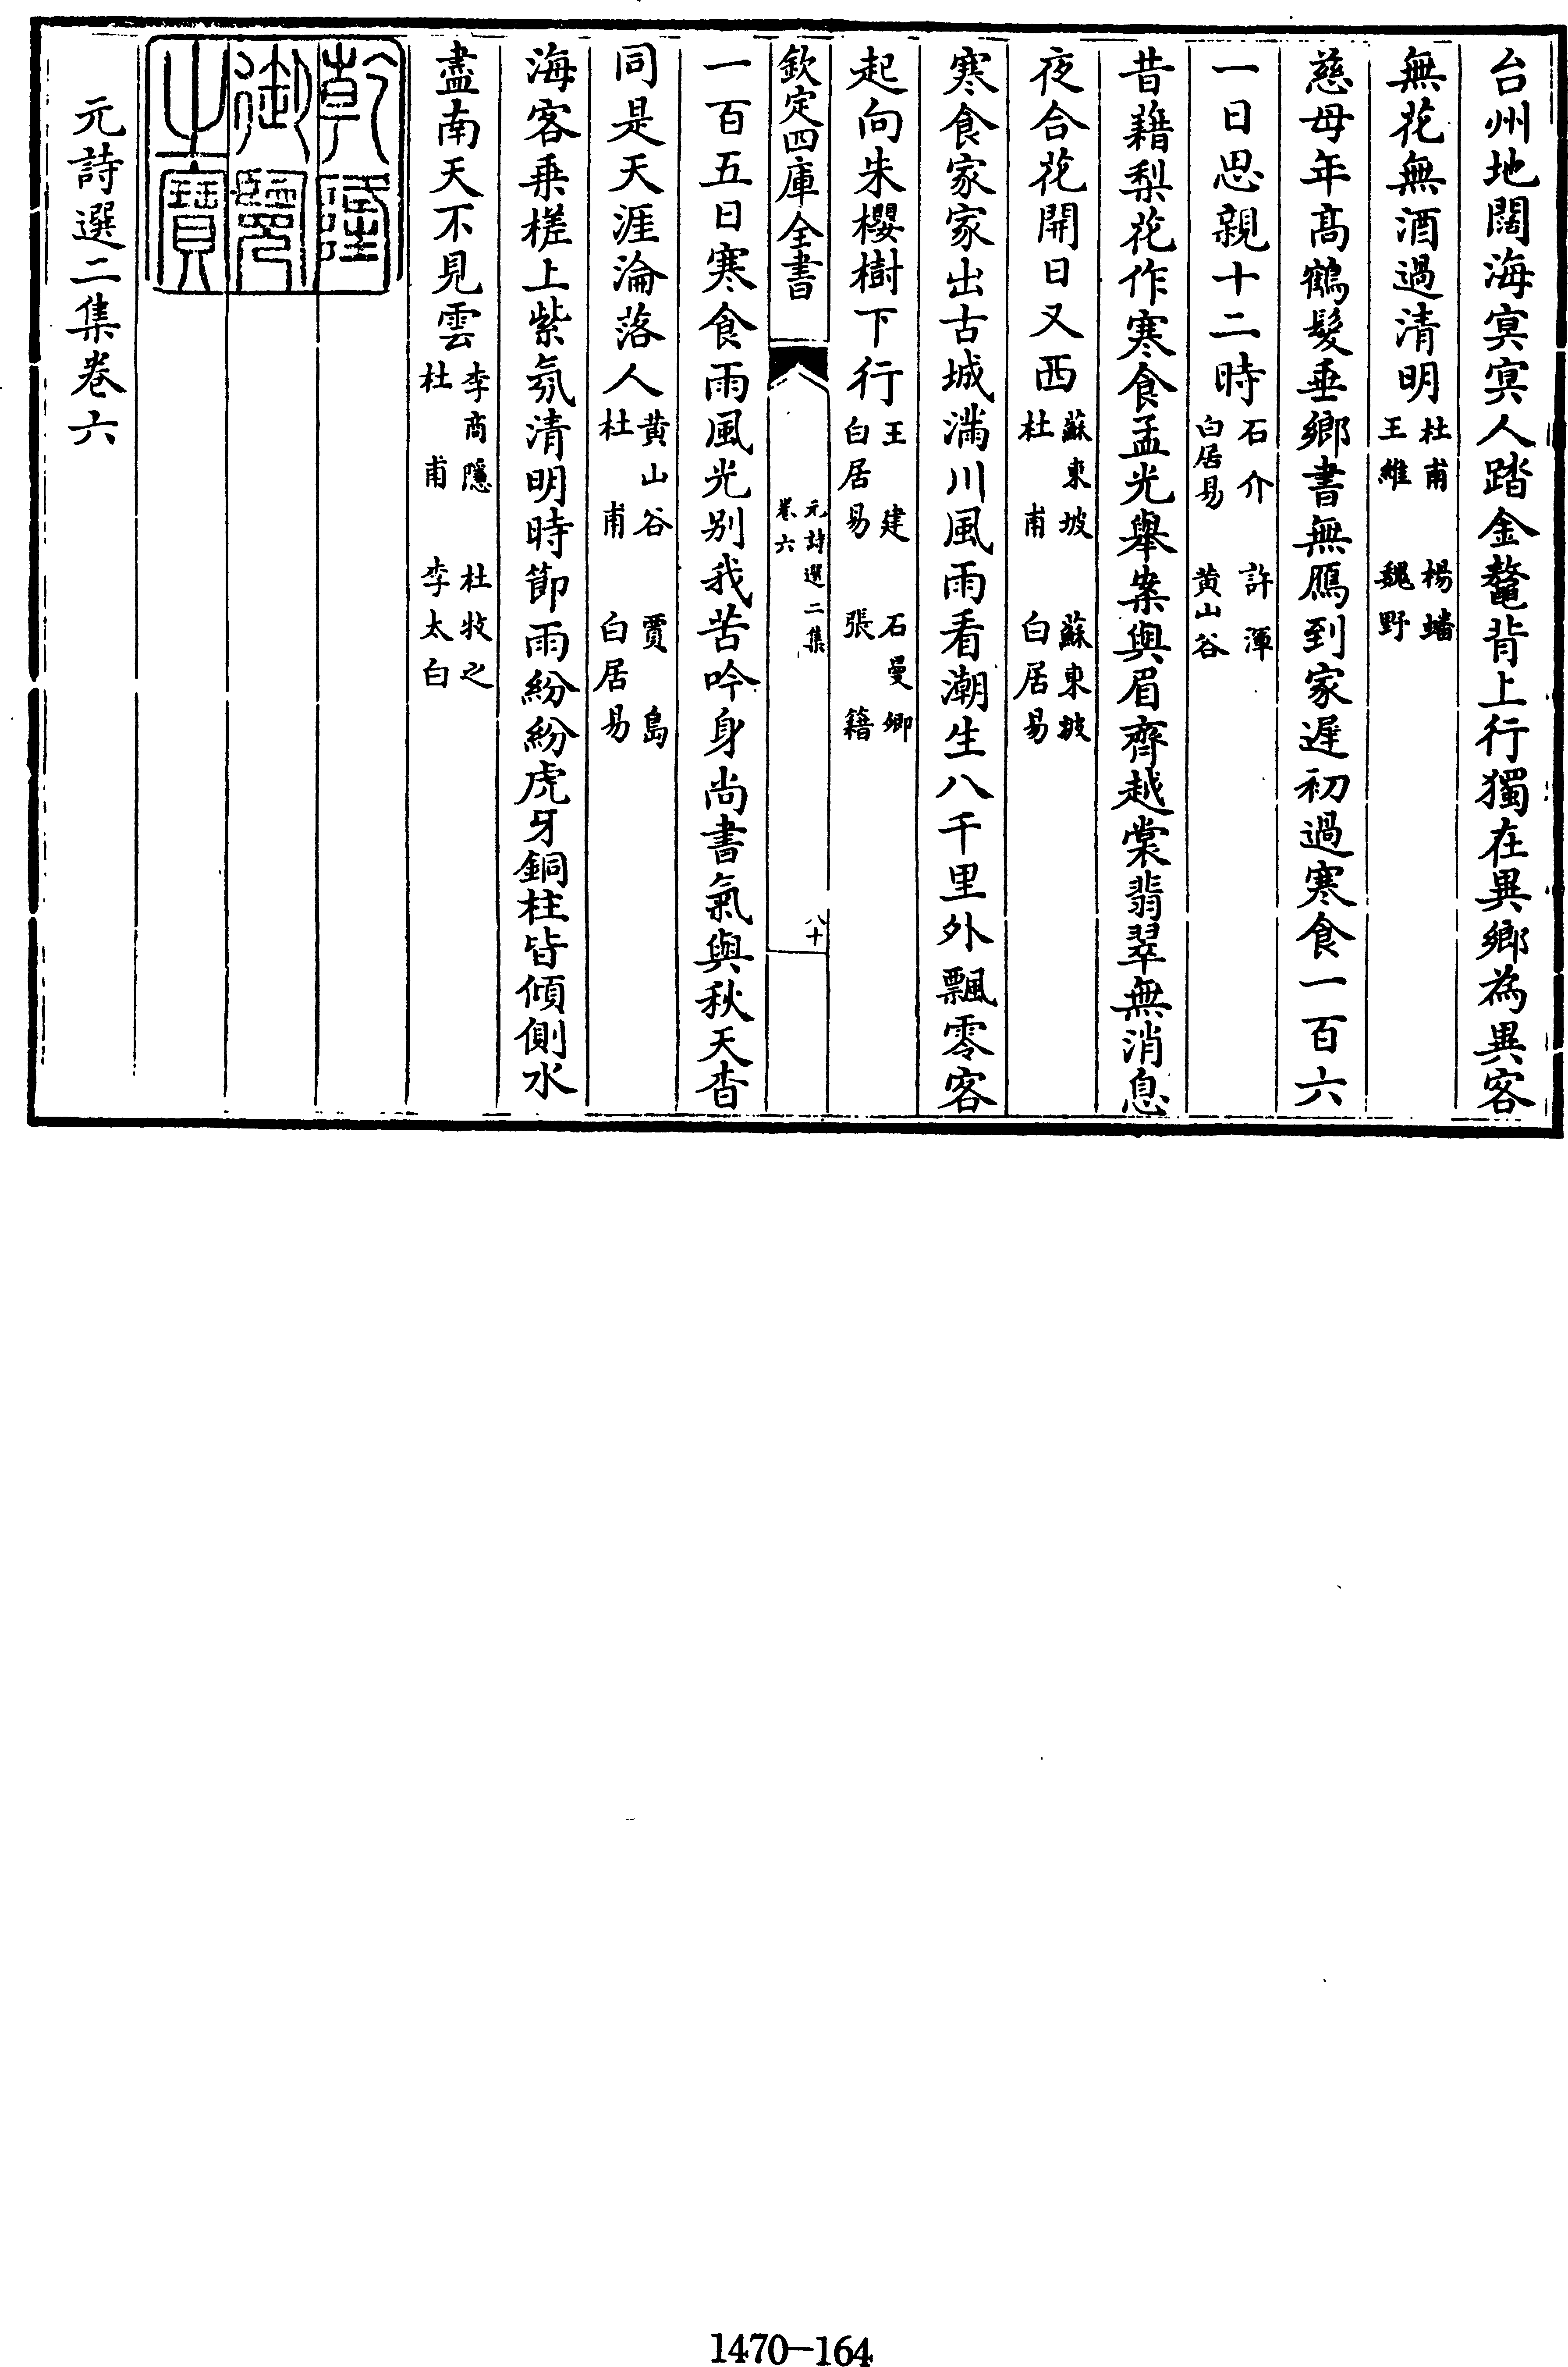 台州地闊海㝠㝠人踏金鼇背上行獨在異鄉為異客
無花無酒過清明杜甫 楊蟠 王維 魏野
慈母年髙鶴髮垂鄉書無鴈到家遲初過寒食一百六
一日思親十二時石介 許渾 白居易 黄山谷
昔藉梨花作寒食孟光舉案與眉齊越裳翡翠無消息
夜合花開日又西蘇東坡 蘇東坡 杜甫 白居易
寒食家家出古城滿川風雨看潮生八千里外飄零客
起向朱櫻樹下行王建 石曼卿 白居易 張籍
欽定四庫全書 元詩選二集 卷六 八十
一百五日寒食雨風光别我苦吟身尚書氣與秋天杳
同是天涯淪落人黄山谷 賈島 杜甫 白居易
海客乗槎上紫氛清明時節雨紛紛虎牙銅柱皆傾側水
盡南天不見雲李商隱 杜牧之 杜甫 李太白
乾隆
御覽
之寶
元詩選二集卷六
1470-164